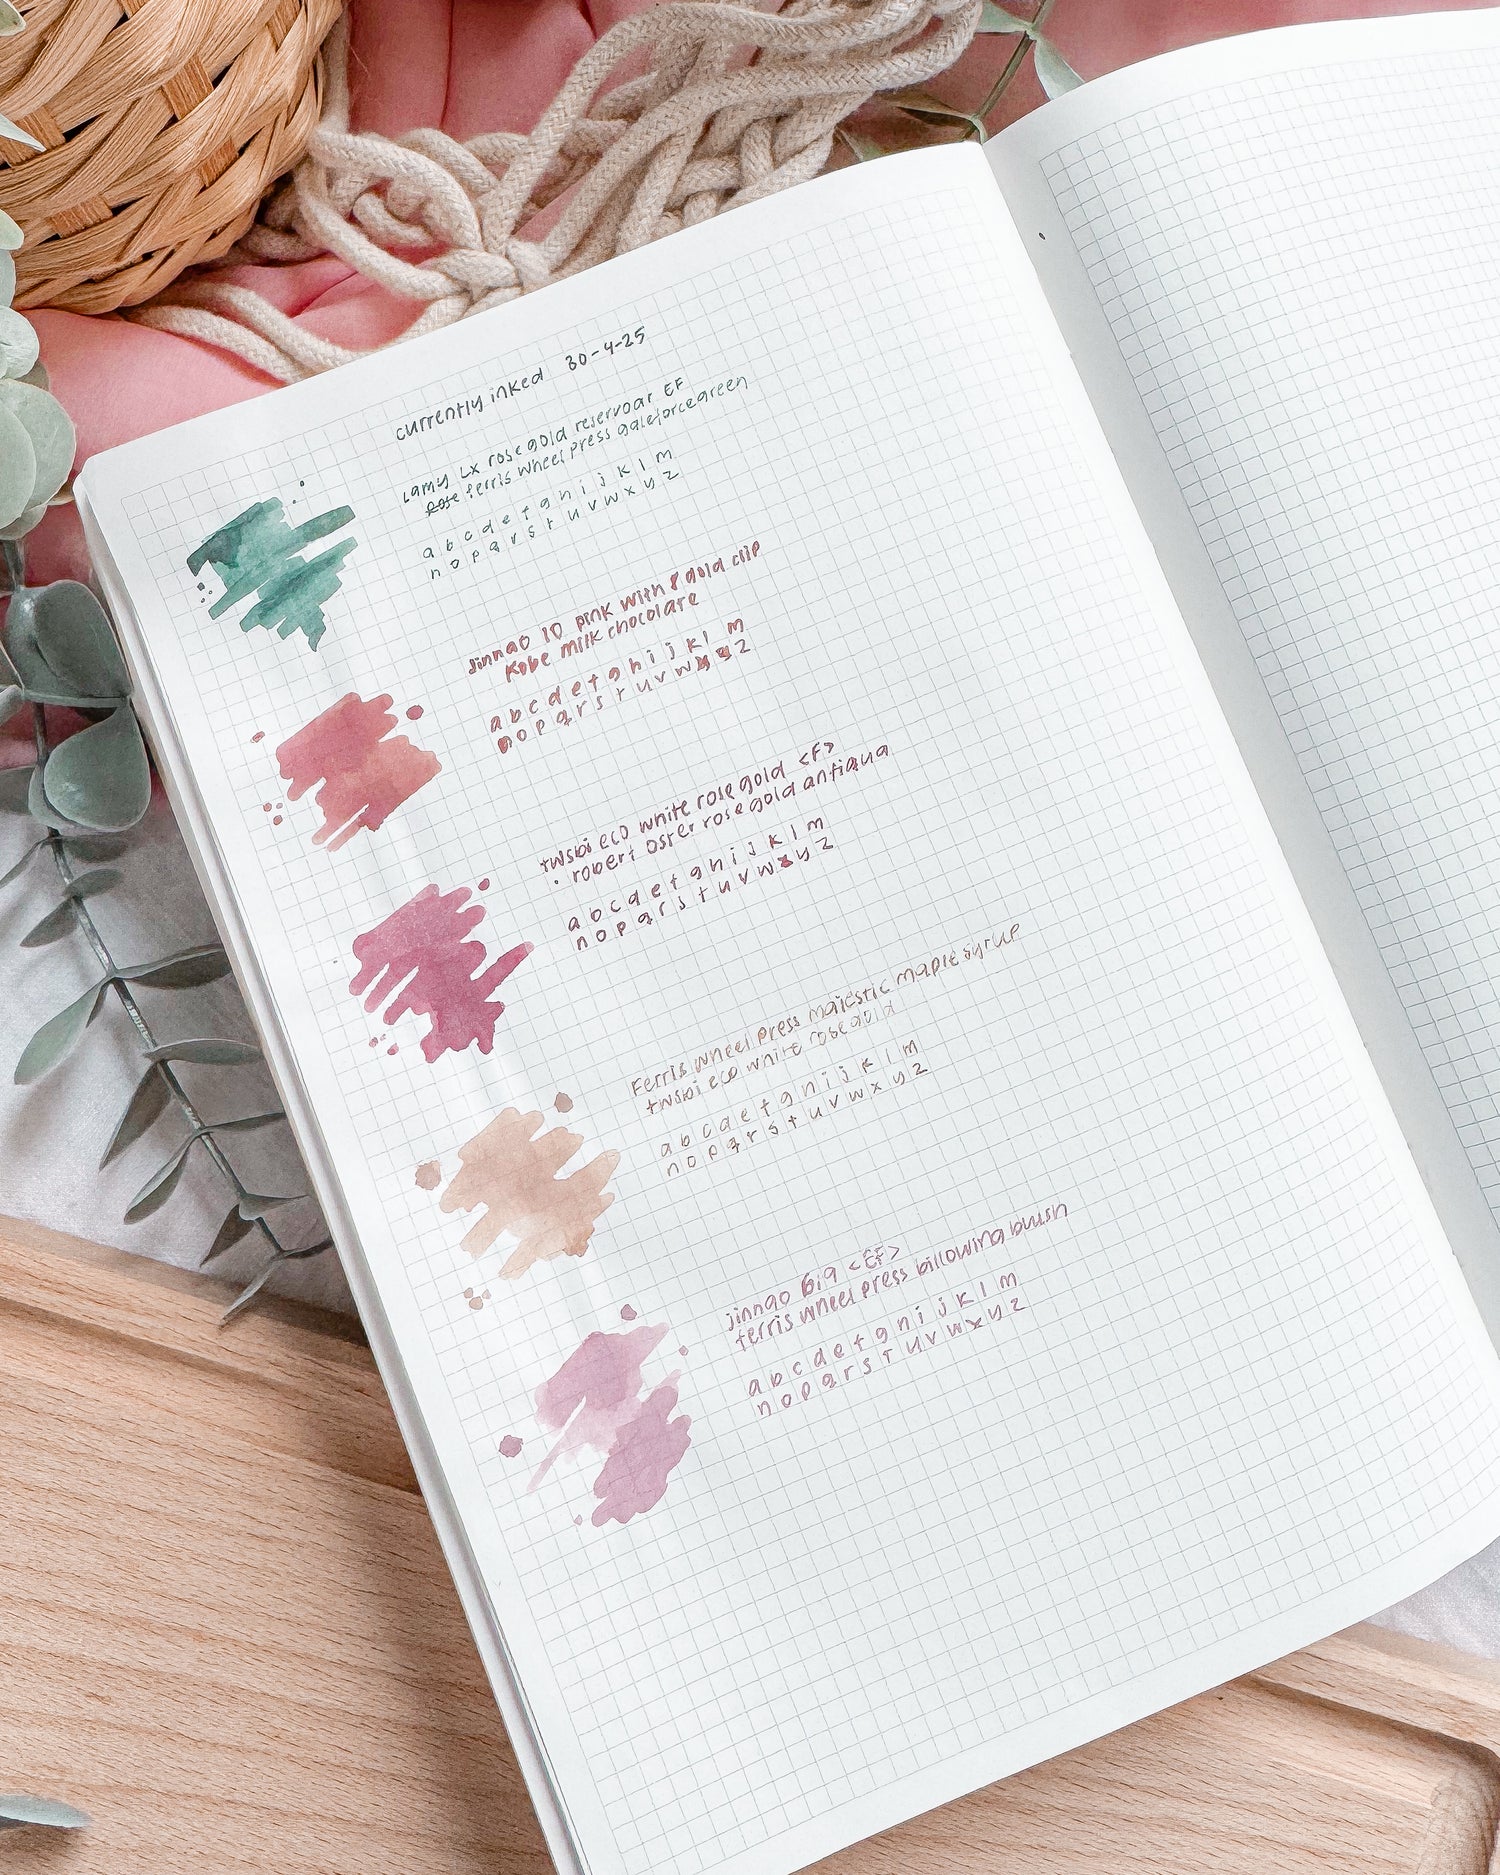 currently inked 30-4-25
Lamy Lx rose gold reservoar EF
ferris wheel press galeforcegreen
a b c d e f g h i j k l m
n o p q r s t u v w x y z
Jinhao 10 pink with gold clip
Kobe milk chocolate
a b c d e f g h i j k l m
n o p q r s t u v w x y z
twsbi eco white rose gold <F>
robert oster rose gold antiqua
a b c d e f g h i j k l m
n o p q r s t u v w x y z
Ferris wheel press majestic maple syrup
twsbi eco white rose gold
a b c d e f g h i j k l m
n o p q r s t u v w x y z
jinhao <EF>
ferris wheel press billowing brush
a b c d e f g h i j k l m
n o p q r s t u v w x y z